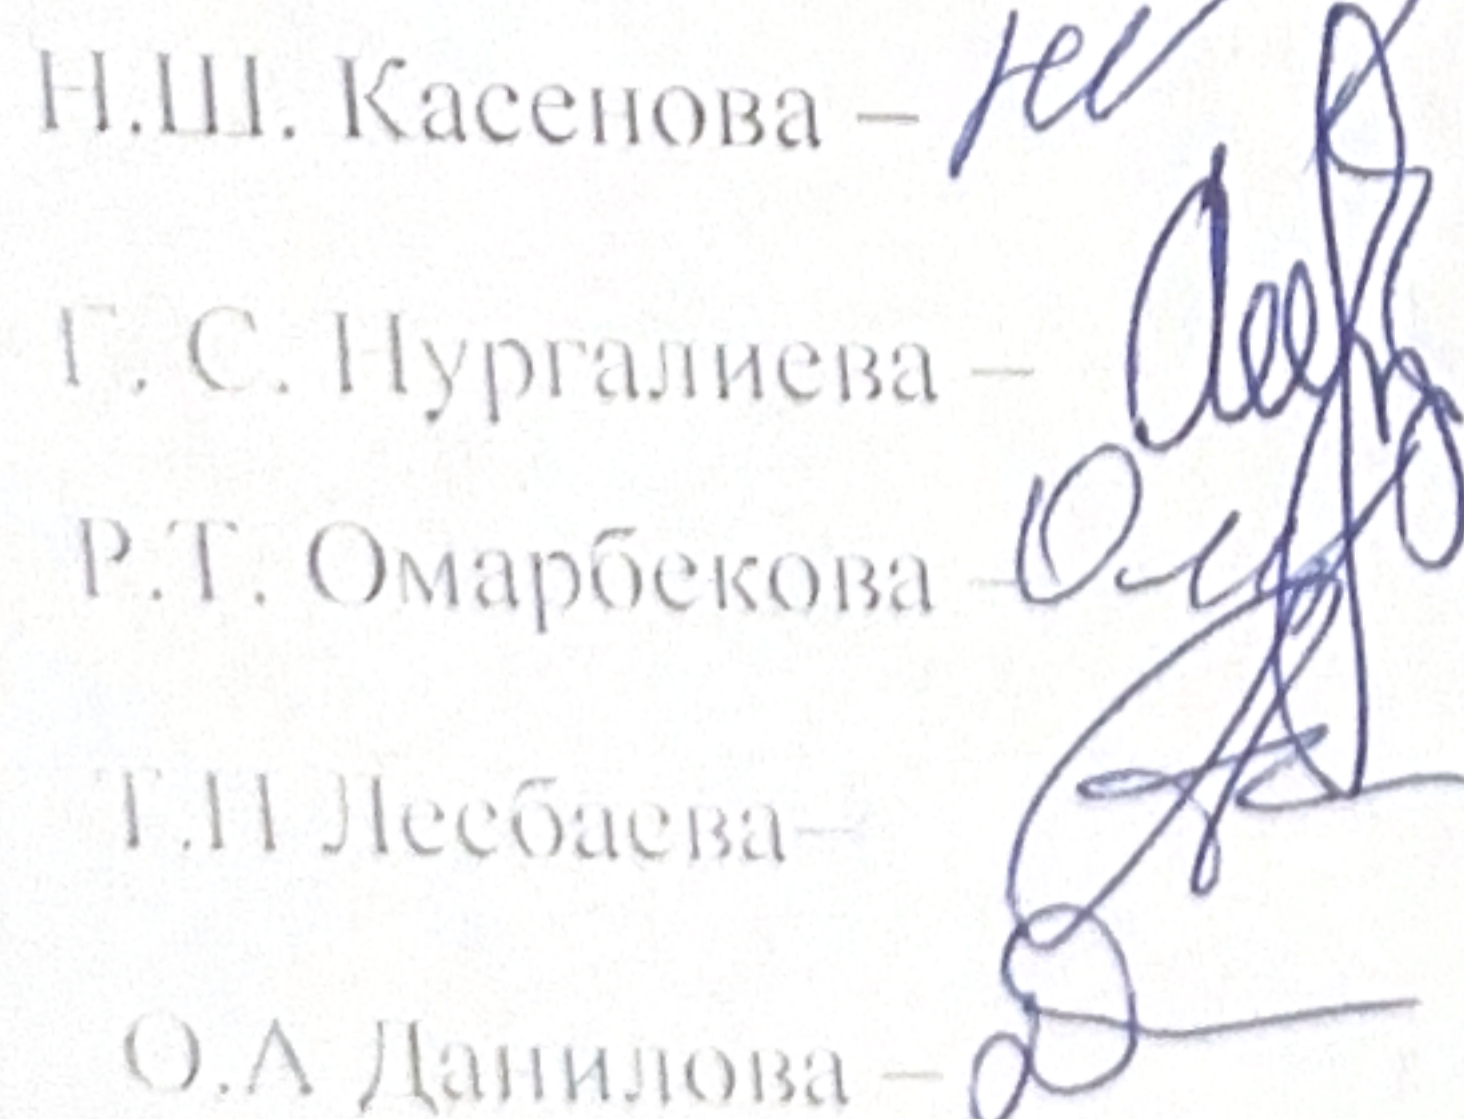 Н.Ш. Касенова –
Г. С. Нургалиева –
Р.Т. Омарбекова –
Т.Н Лесбаева–
О.А Данилова –